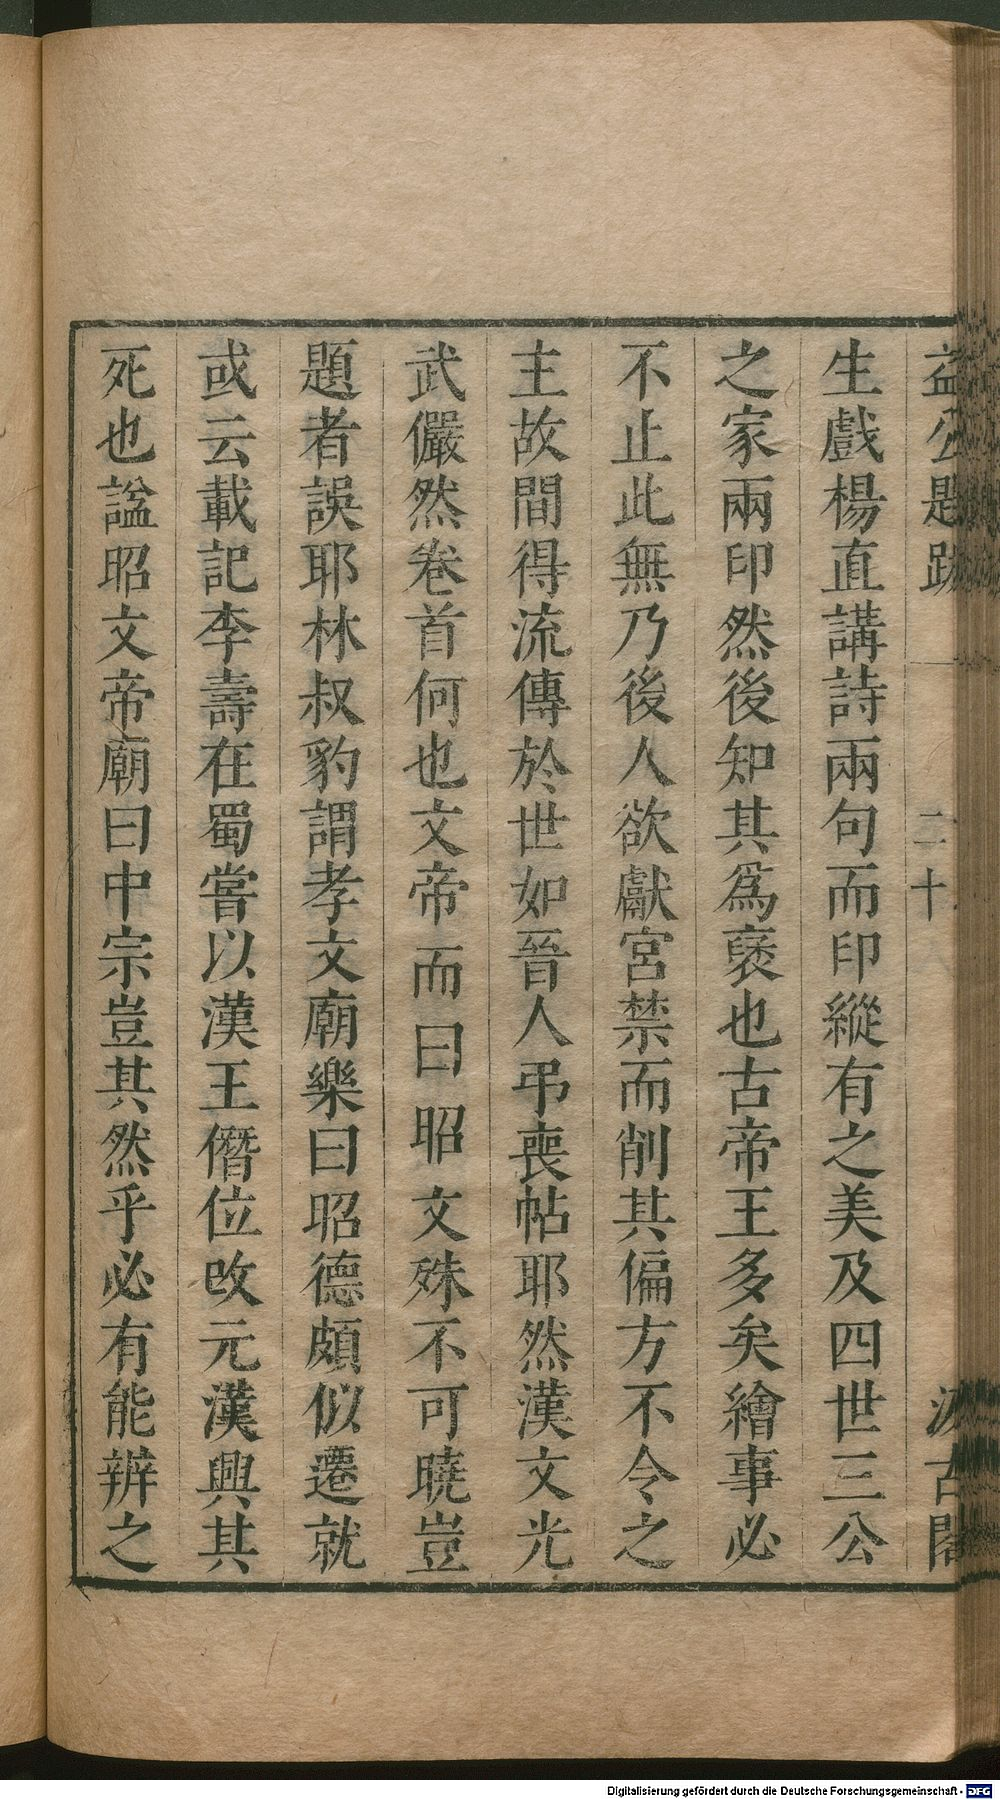 益公題跋 二十 汲古閣
生戲楊直講詩兩句而印縱有之美及四世三公
之家兩印然後知其爲褒也古帝王多矣繪事必
不止此無乃後人欲獻宮禁而削其偏方不令之
主故間得流傳於世如晉人弔喪帖耶然漢文光
武儼然卷首何也文帝而曰昭文殊不可曉豈
題者誤耶林叔豹謂孝文廟樂曰昭德頗似遷就
或云載記李壽在蜀嘗以漢王僭位改元漢興其
死也諡昭文帝廟曰中宗豈其然乎必有能辨之
Digitalisierung gefördert durch die Deutsche Forschungsgemeinschaft - DFG